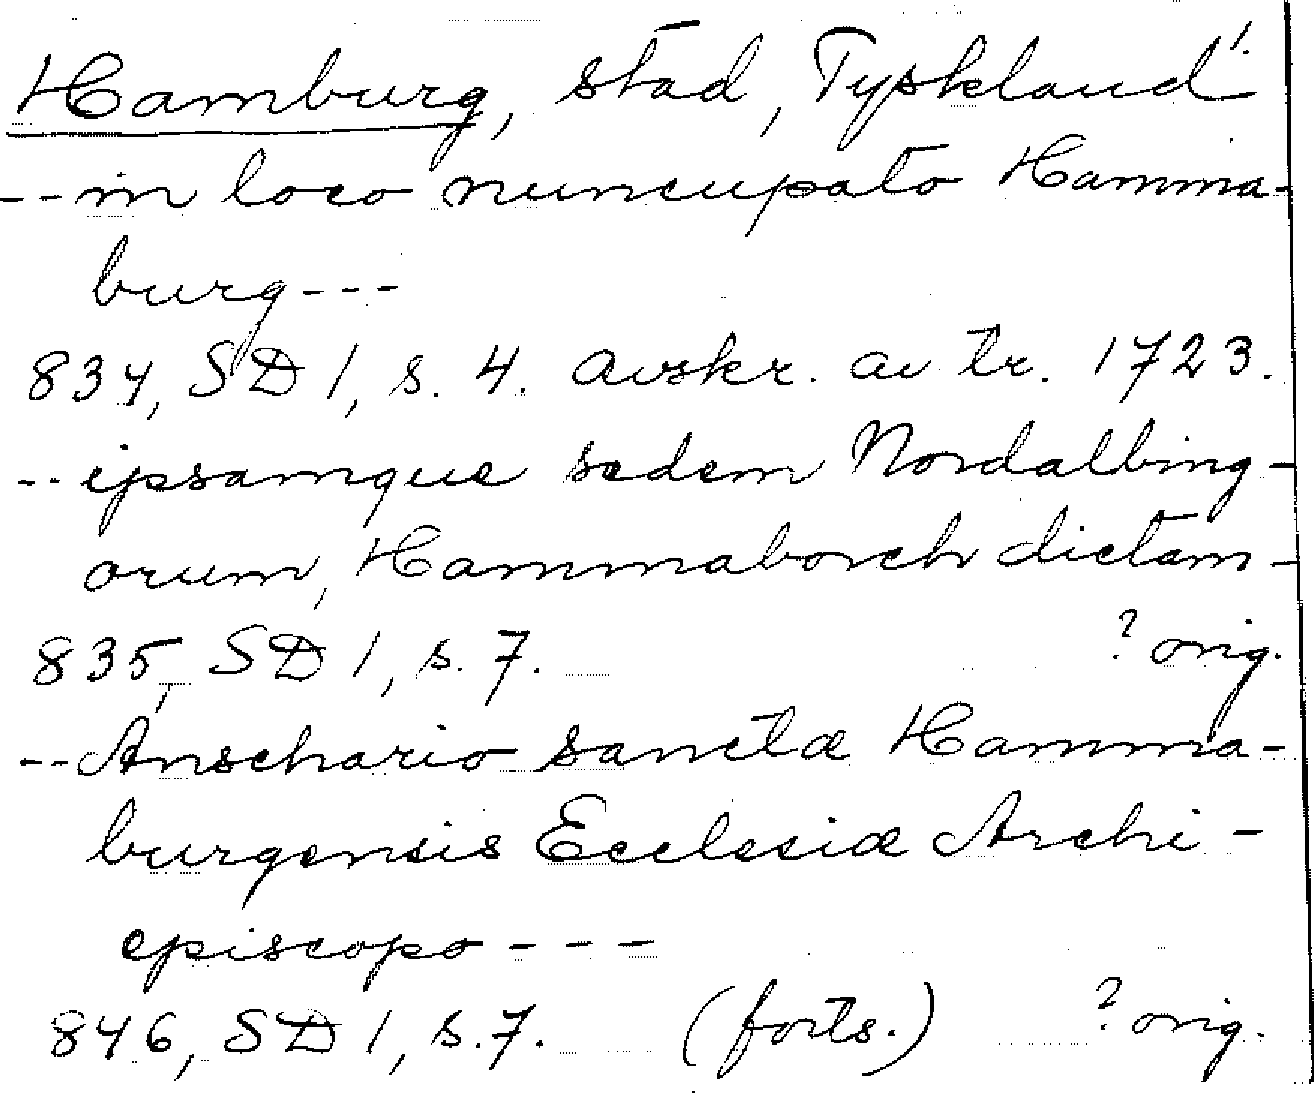 Hamburg, stad, Tyskland 1.
--in loco nuncupato Hamma-
burg---
834, SD 1, s. 4. avskr. av tr. 1723.
--ipsamque sedem Nordalbing-
orum, Hammaborch dictam-
835, SD 1, s. 7. ? orig.
--Anschario sanctæ Hamma-
burgensis Ecclesiæ Archi-
episcopo---
846, SD 1, s. 7. (forts.) ? orig.